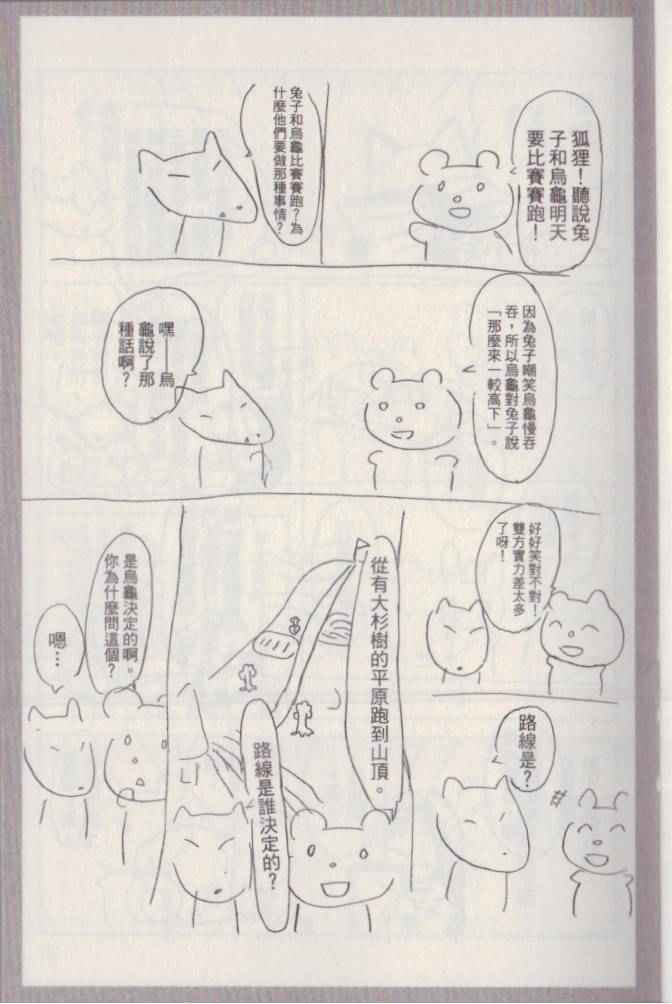 狐狸！聽說兔
子和烏龜明天
要比賽賽跑！
兔子和烏龜比賽賽跑？為
什麼他們要做那種事情？
因為兔子嘲笑烏龜慢吞
吞，所以烏龜對兔子說
「那麼來一較高下」。
嘿——烏
龜說了那
種話啊？
好好笑對不對！
雙方實力差太多
了呀！
路線是？
從有大杉樹的平原跑到山頂。
路線是誰決定的？
是烏龜決定的啊。
你為什麼問這個？
嗯…